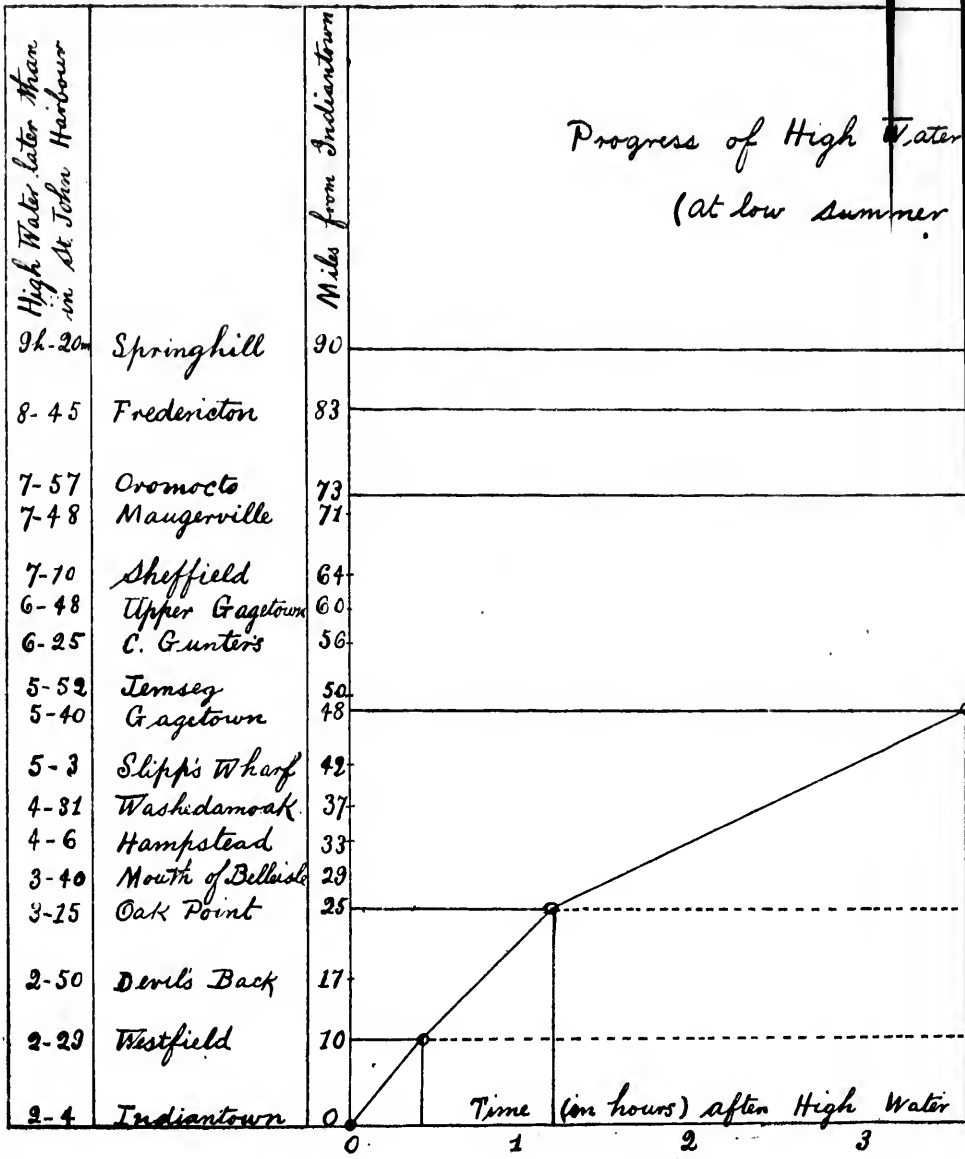 High Water later than
in St. John Harbour
Miles from Indiantown
Progress of High Water
(at low summer
9h-20m Springhill 90
8-45 Fredericton 83
7-57 Oromocto 73
7-48 Maugerville 71
7-10 Sheffield 64
6-48 Upper Gagetown 60
6-25 C. Gunter's 56
5-52 Jemseg 50
5-40 Gagetown 48
5-3 Slipp's Wharf 42
4-31 Washedamoak 37
4-6 Hampstead 33
3-40 Mouth of Belleisle 29
3-15 Oak Point 25
2-50 Devil's Back 17
2-29 Westfield 10
2-4 Indiantown 0
Time (in hours) after High Water
0 1 2 3